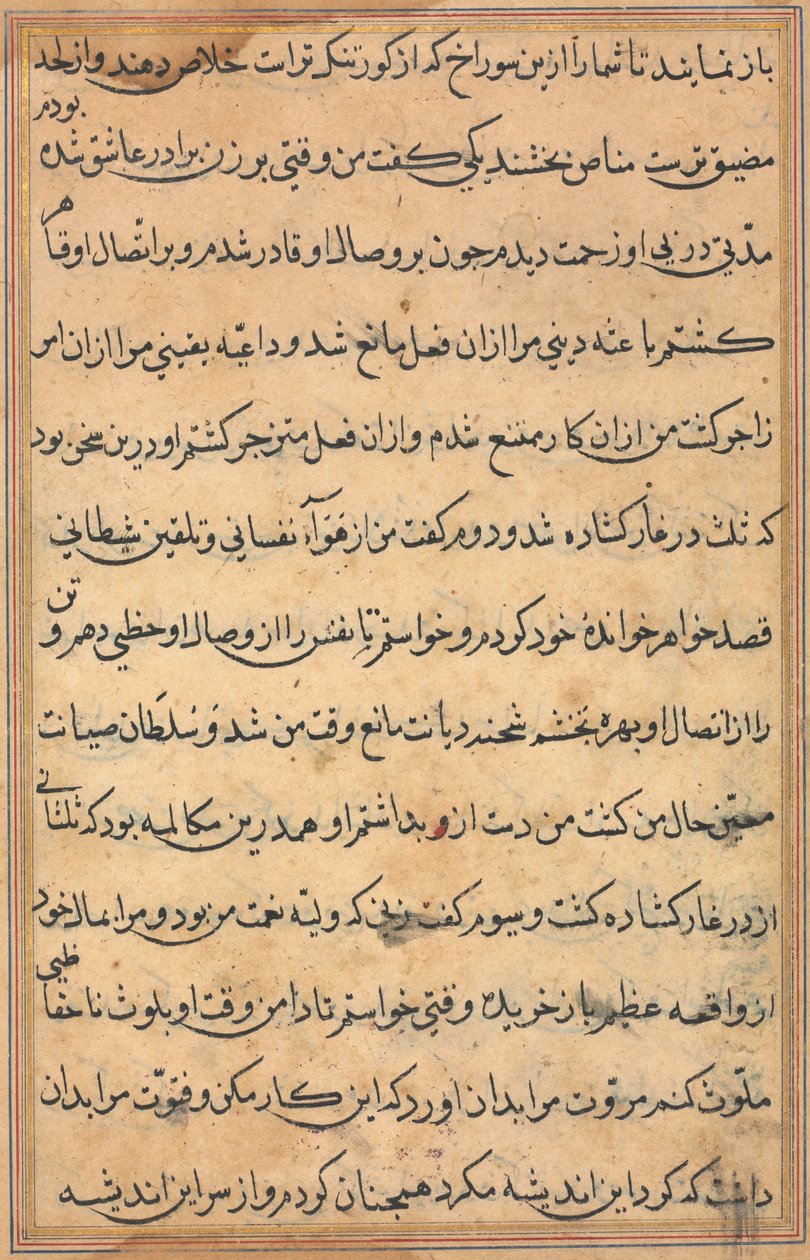 باز نمایند تا شما را ازین سوراخ که از کور تنک تراست خلاص دهند و از لحد
مضیق ترست مناص بخشند یکی کفت من وقتی بر زن برادر عاشق شده بودم
مدّتی در پی او زحمت دیدم جون بر وصال او قادر شدم و بر اتّصال او قاهر
کشتم باعثه دینی مرا ازان فعل مانع شد و داعیّه یقینی مرا ازان امر
زاجر کشت من ازان کار ممتنع شدم و ازان فعل متزجر کشتم او درین سخن بود
که ثلث در غار کشاده شد و دوم کفت من از هَوَآء نفسانی و تلقین شیطانی
قصد خواهر خواندهٔ خود کردم و خواستم تا نفس را از وصال او حظی دهم و تن
را از اتصال او بهره بخشم شحنه دیانت مانع وقت من شد وَ سُلطَان صیانت
معیّن حال من کشت من دست ازو بداشتم او همدرین مکالمه بود که ثلثانی
از در غار کشاده کشت و سیوم کفت زنی که ولیّه نعمت من بود و مرا بمال خود
از واقعه عظیم باز خریده وقتی خواستم تا دامن وقت او بلوث ناحفاظی
ملوّث کنم مروّت مرا بدان اورد که این کار مکن و فتوّت مرا بدان
داشت که کرد این اندیشه مکرد همجنان کردم و از سر این اندیشه